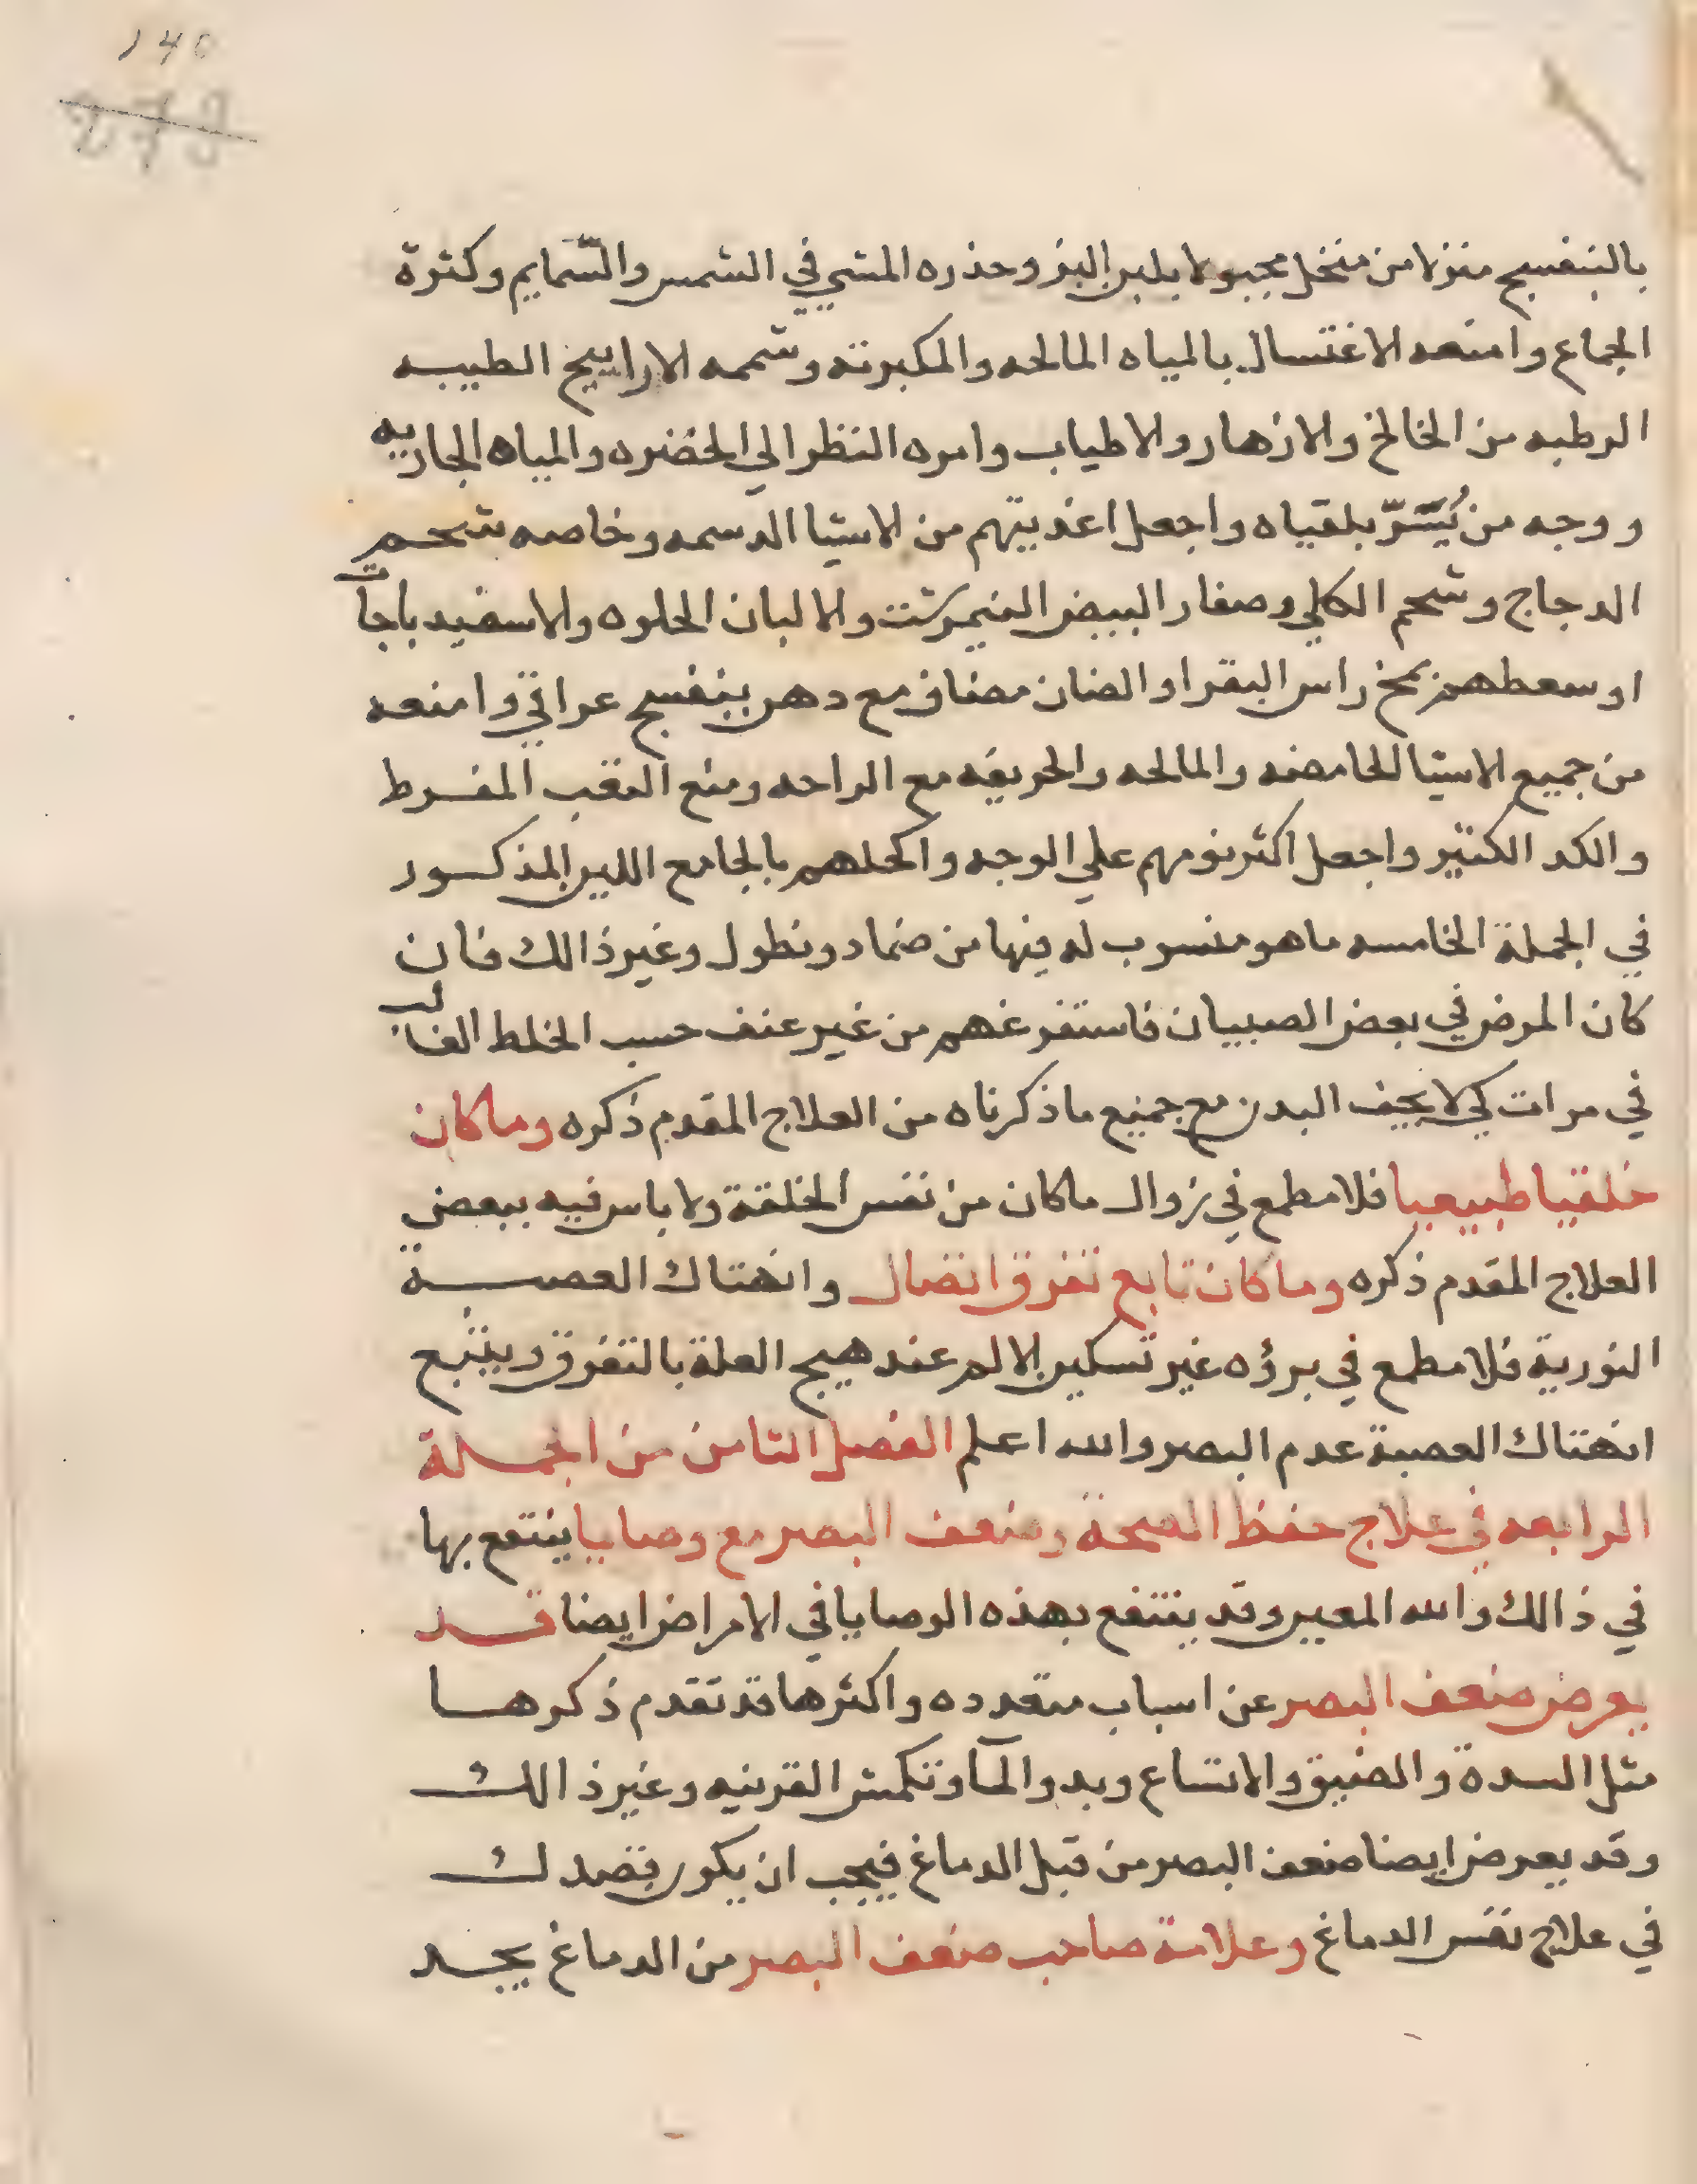 ١٤٥
٢٧٩
بالبنفسج منزلا من منخل مجبولا بلبن البز وحذره المشي في الشمس والسّمايم وكثرة
الجماع وامنعه الاغتسال بالمياه المالحه والمكبرته وشممه الاراييح الطيبه
الرطبه من الخالخ والازهار والاطياب وامره النظر الي الخضره والمياه الجاريه
ووجه من يُسَرّ بلقياه واجعل اغذيتهم من الاشيا الدسمه وخاصه شحم
الدجاج وشحم الكلي وصفار البيض النيمرشت والالبان الحلوه والاسفيدباجات
اوسعطهم بمخ راس البقر او الضان مضاف مع دهن بنفسج عراقي وامنعه
من جميع الاشيا الحامضه والمالحه والحريفه مع الراحه ومنع التعب المفرط
والكد الكثير واجعل اكثر نومهم علي الوجه واكحلهم بالجامع اللين المذكور
في الجملة الخامسه ما هو منسوب له فيها من ضماد ونطول وغير ذالك فان
كان المرض في بعض الصبيان فاستفرغهم من غير عنف حسب الخلط الغالب
في مرات كي لا يجف البدن مع جميع ما ذكرناه من العلاج المقدم ذكره وما كان
خلقيا طبيعيا فلا مطمع في زوال ما كان من نفس الخلقة ولا باس فيه ببعض
العلاج المقدم ذكره وما كان تابع تفرق اتصال وانهتاك العصبة
النورية فلا مطمع في برؤه غير تسكين الالم عند هيج العلة بالتفرق ويتبع
انهتاك العصبة عدم البصر والله اعلم الفصل الثامن من الجملة
الرابعه في علاج حفظ الصحة وضعف البصر مع وصايا ينتفع بها
في ذالك والله المعين وقد ينتفع بهذه الوصايا في الامراض ايضا قد
يعرض ضعف البصر عن اسباب متعدده واكثرها قد تقدم ذكرها
مثل السدة والضيق والاتساع وبدو المآ وتكمش القرنيه وغير ذالك
وقد يعرض ايضا ضعف البصر من قبل الدماغ فيجب ان يكون قصدك
في علاج نفس الدماغ وعلامة صاحب ضعف البصر من الدماغ يجد